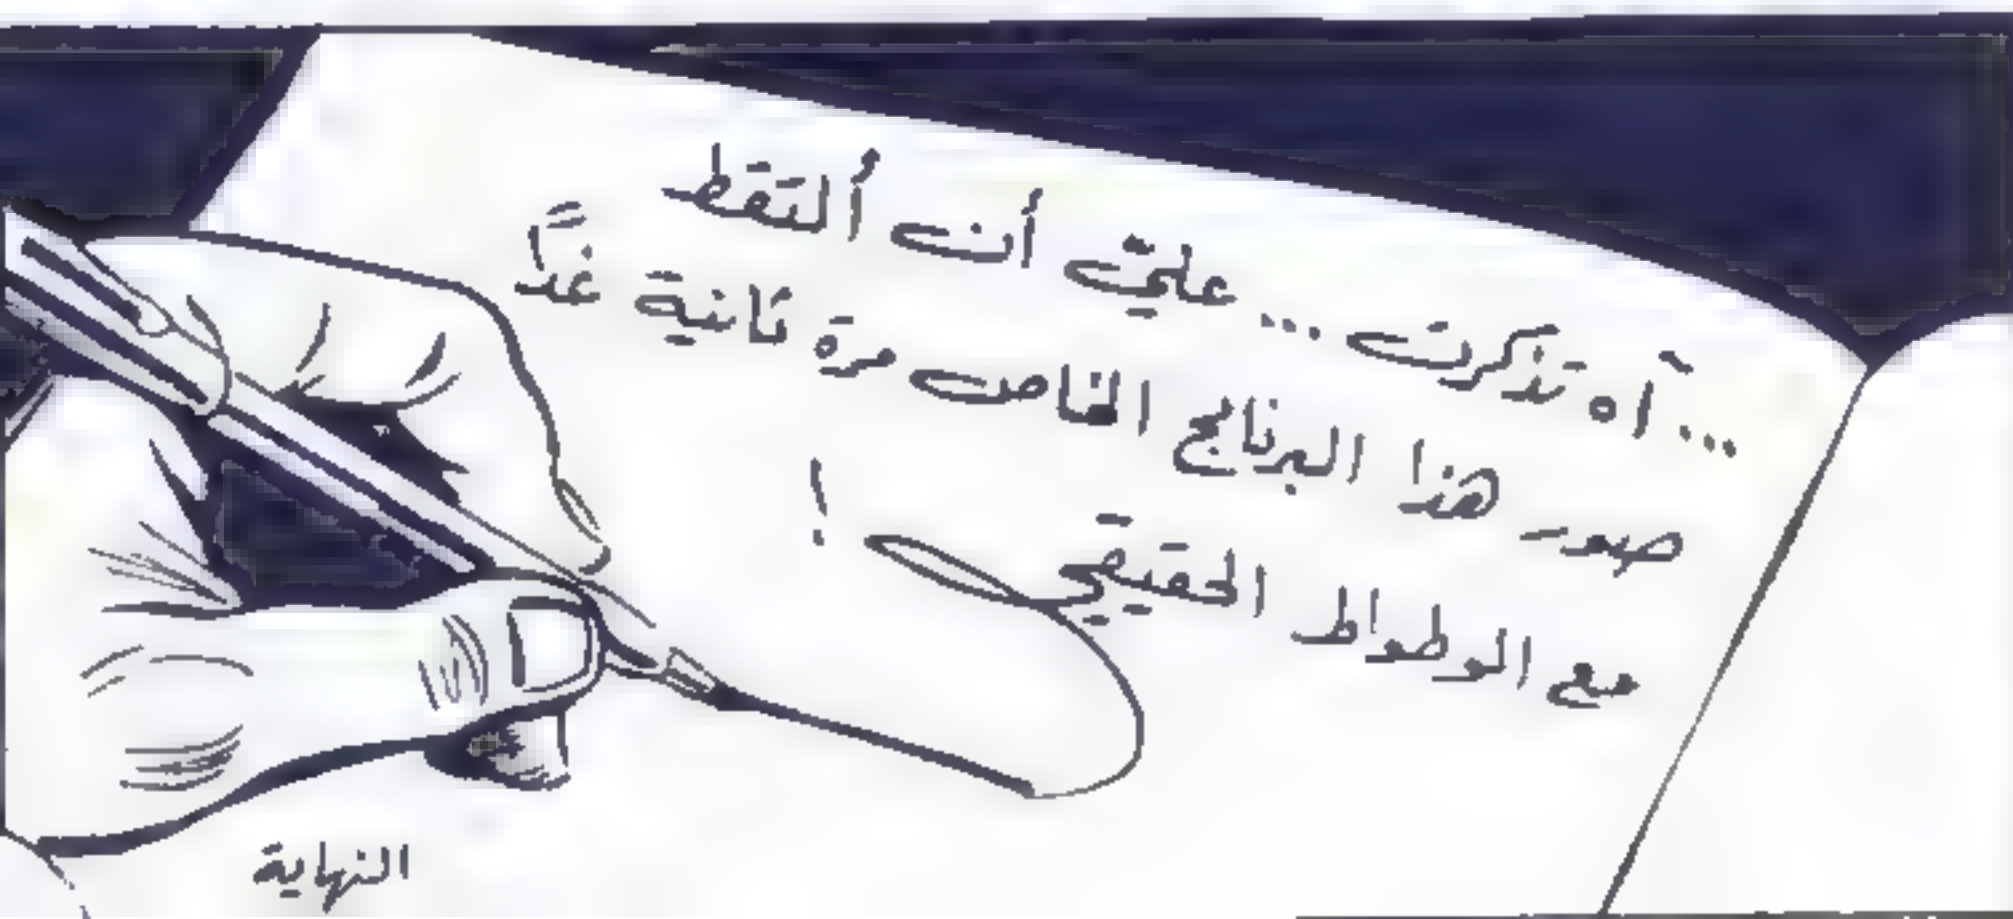 ... آه تذكرت ... عليّ أن ألتقط
صور هذا البرنامج الخاص مرة ثانية غداً
مع الوطواط الحقيقي !
النهاية